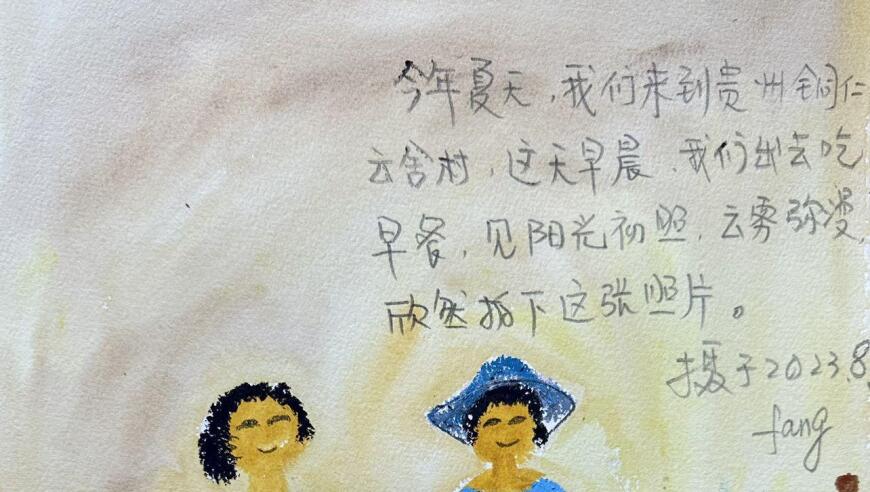 今年夏天,我们来到贵州铜仁
云舍村,这天早晨,我们出去吃
早餐,见阳光初照,云雾弥漫,
欣然拍下这张照片。
摄于2023.8
fang